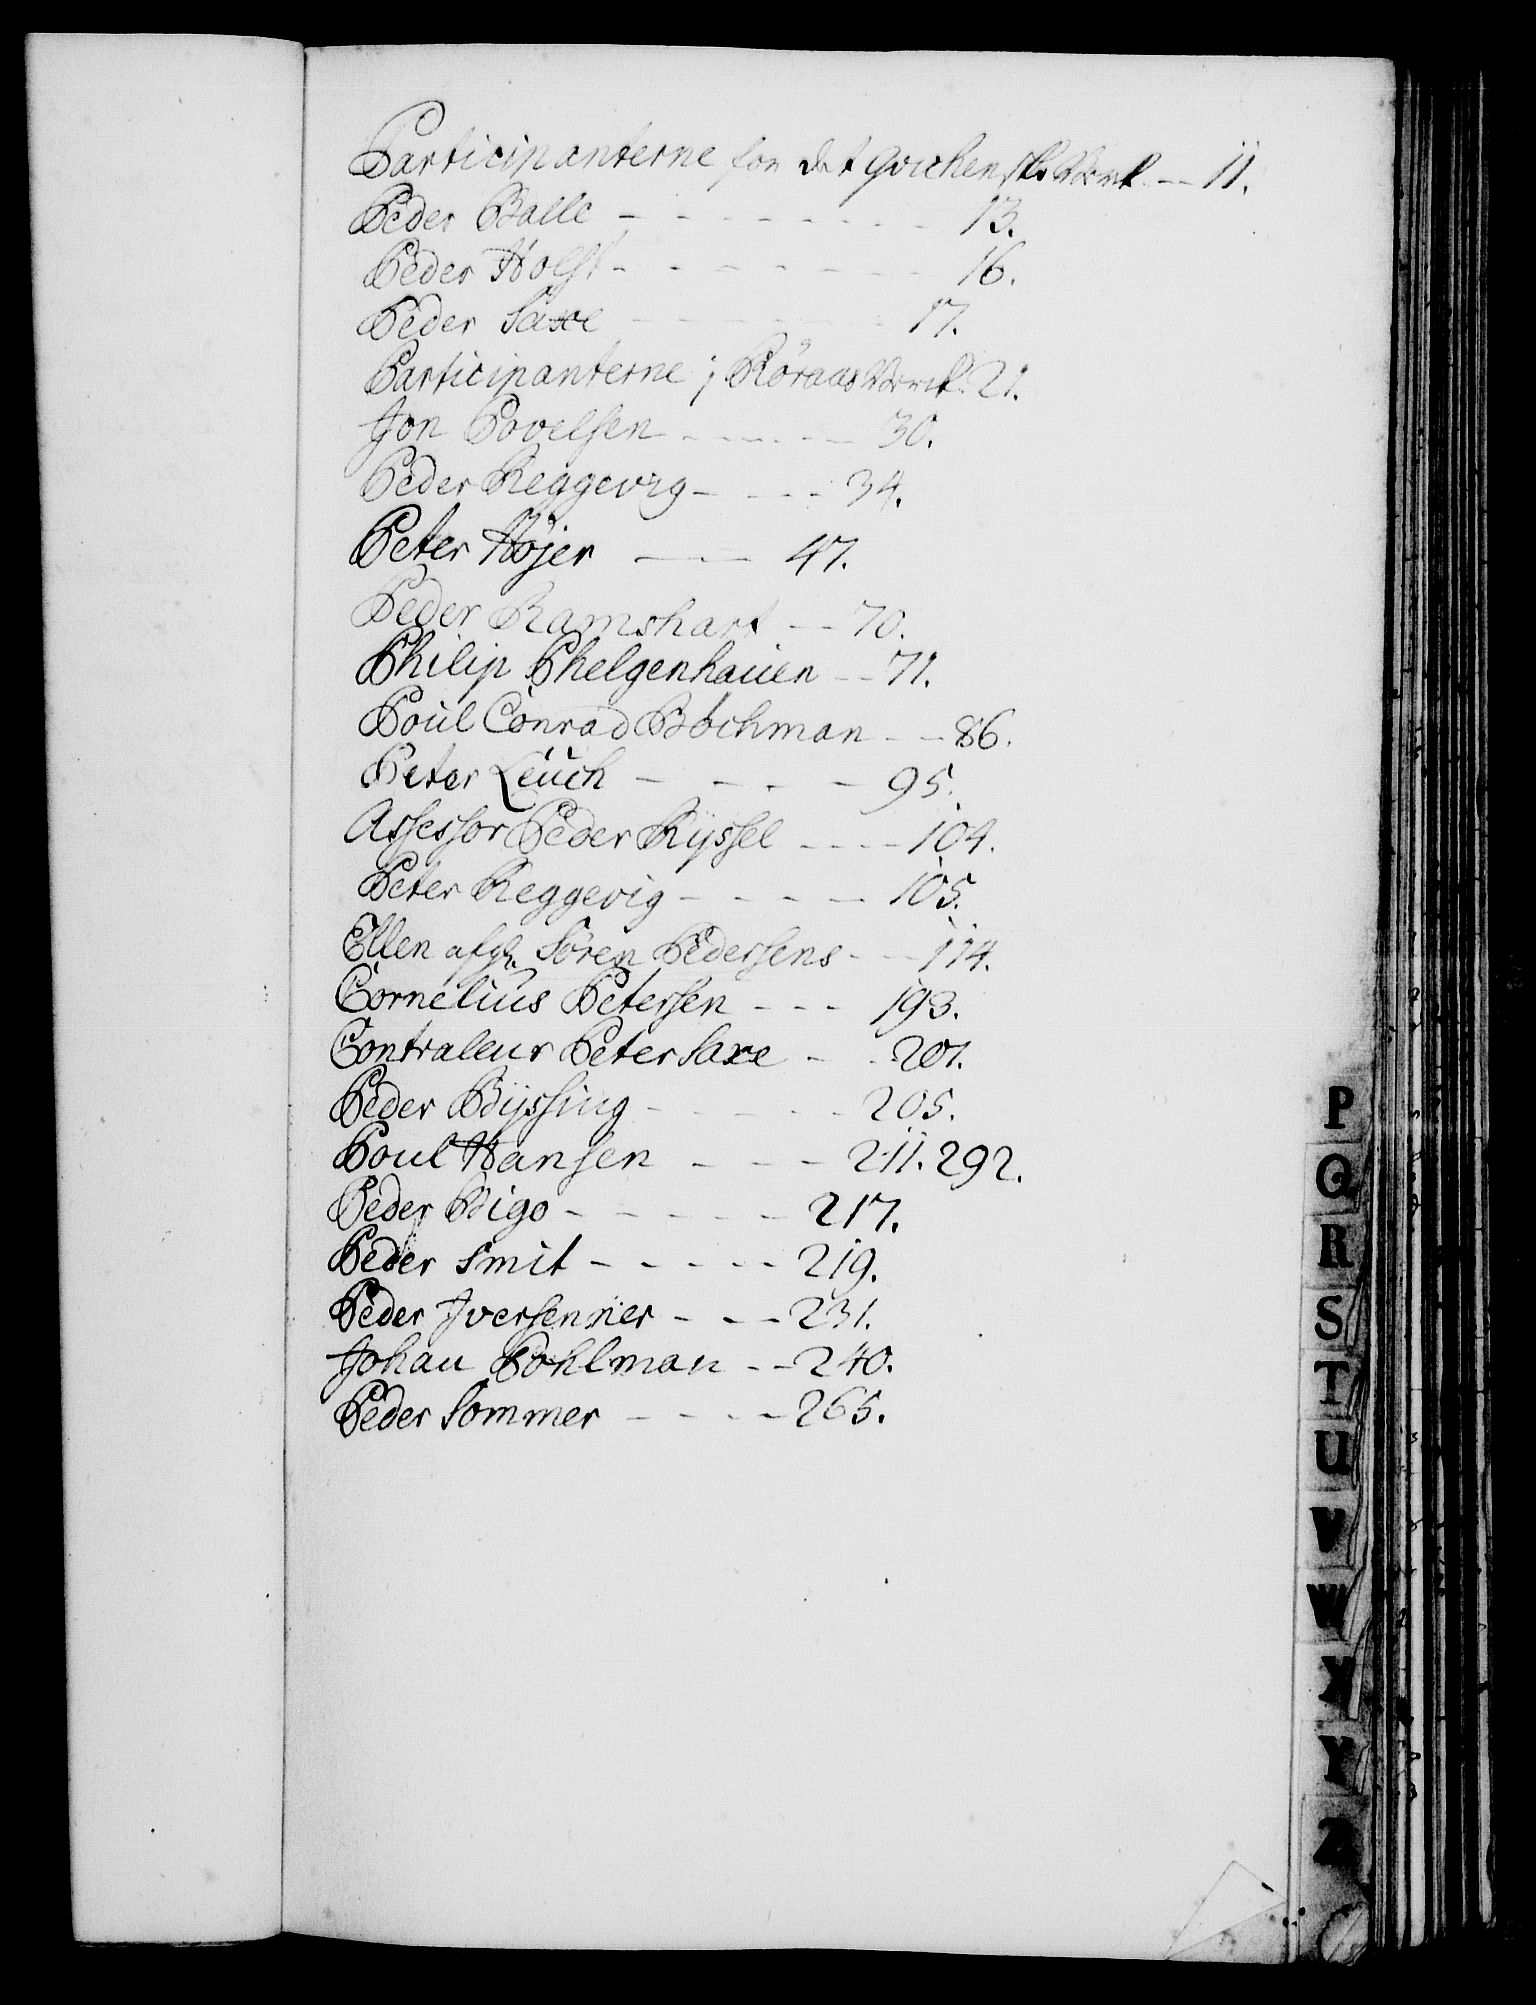 Participanterne for det Qvickenske Værck -- 11.
Peder Balle - - - - - - - - 13.
Peder Holst - - - - - - - - 16.
Peder Saxe - - - - - - 17.
Participanterne i Röraas Værck. 21.
Jon Povelsen - - - - - - 30.
Peder Reggevig - - - - 34.
Peter Höjer - - - 47.
Peder Ramshart - - 70.
Philip Phelgenhauer - - 71.
Poul Conrad Böchman - - 86.
Peter Leuch - - - - - 95.
Assessor Peder Ryssel - - - - 104.
Peter Reggevig - - - - - 105.
Ellen afgl. Sören Pedersens - - - 114.
Cornelius Petersen - - - 193.
Contraleur Peter Saxe - - 201.
Peder Byssing - - - - - 205.
Poul Hansen - - - 211. 292.
Peder Bigo - - - - - 217.
Peder Smit - - - - - 219.
Peder Iversenner - - - 231.
Johan Pohlman - - 240.
Peder Sommer - - - - 265.
P
Q
R
S
T
U
V
W
X
Y
Z